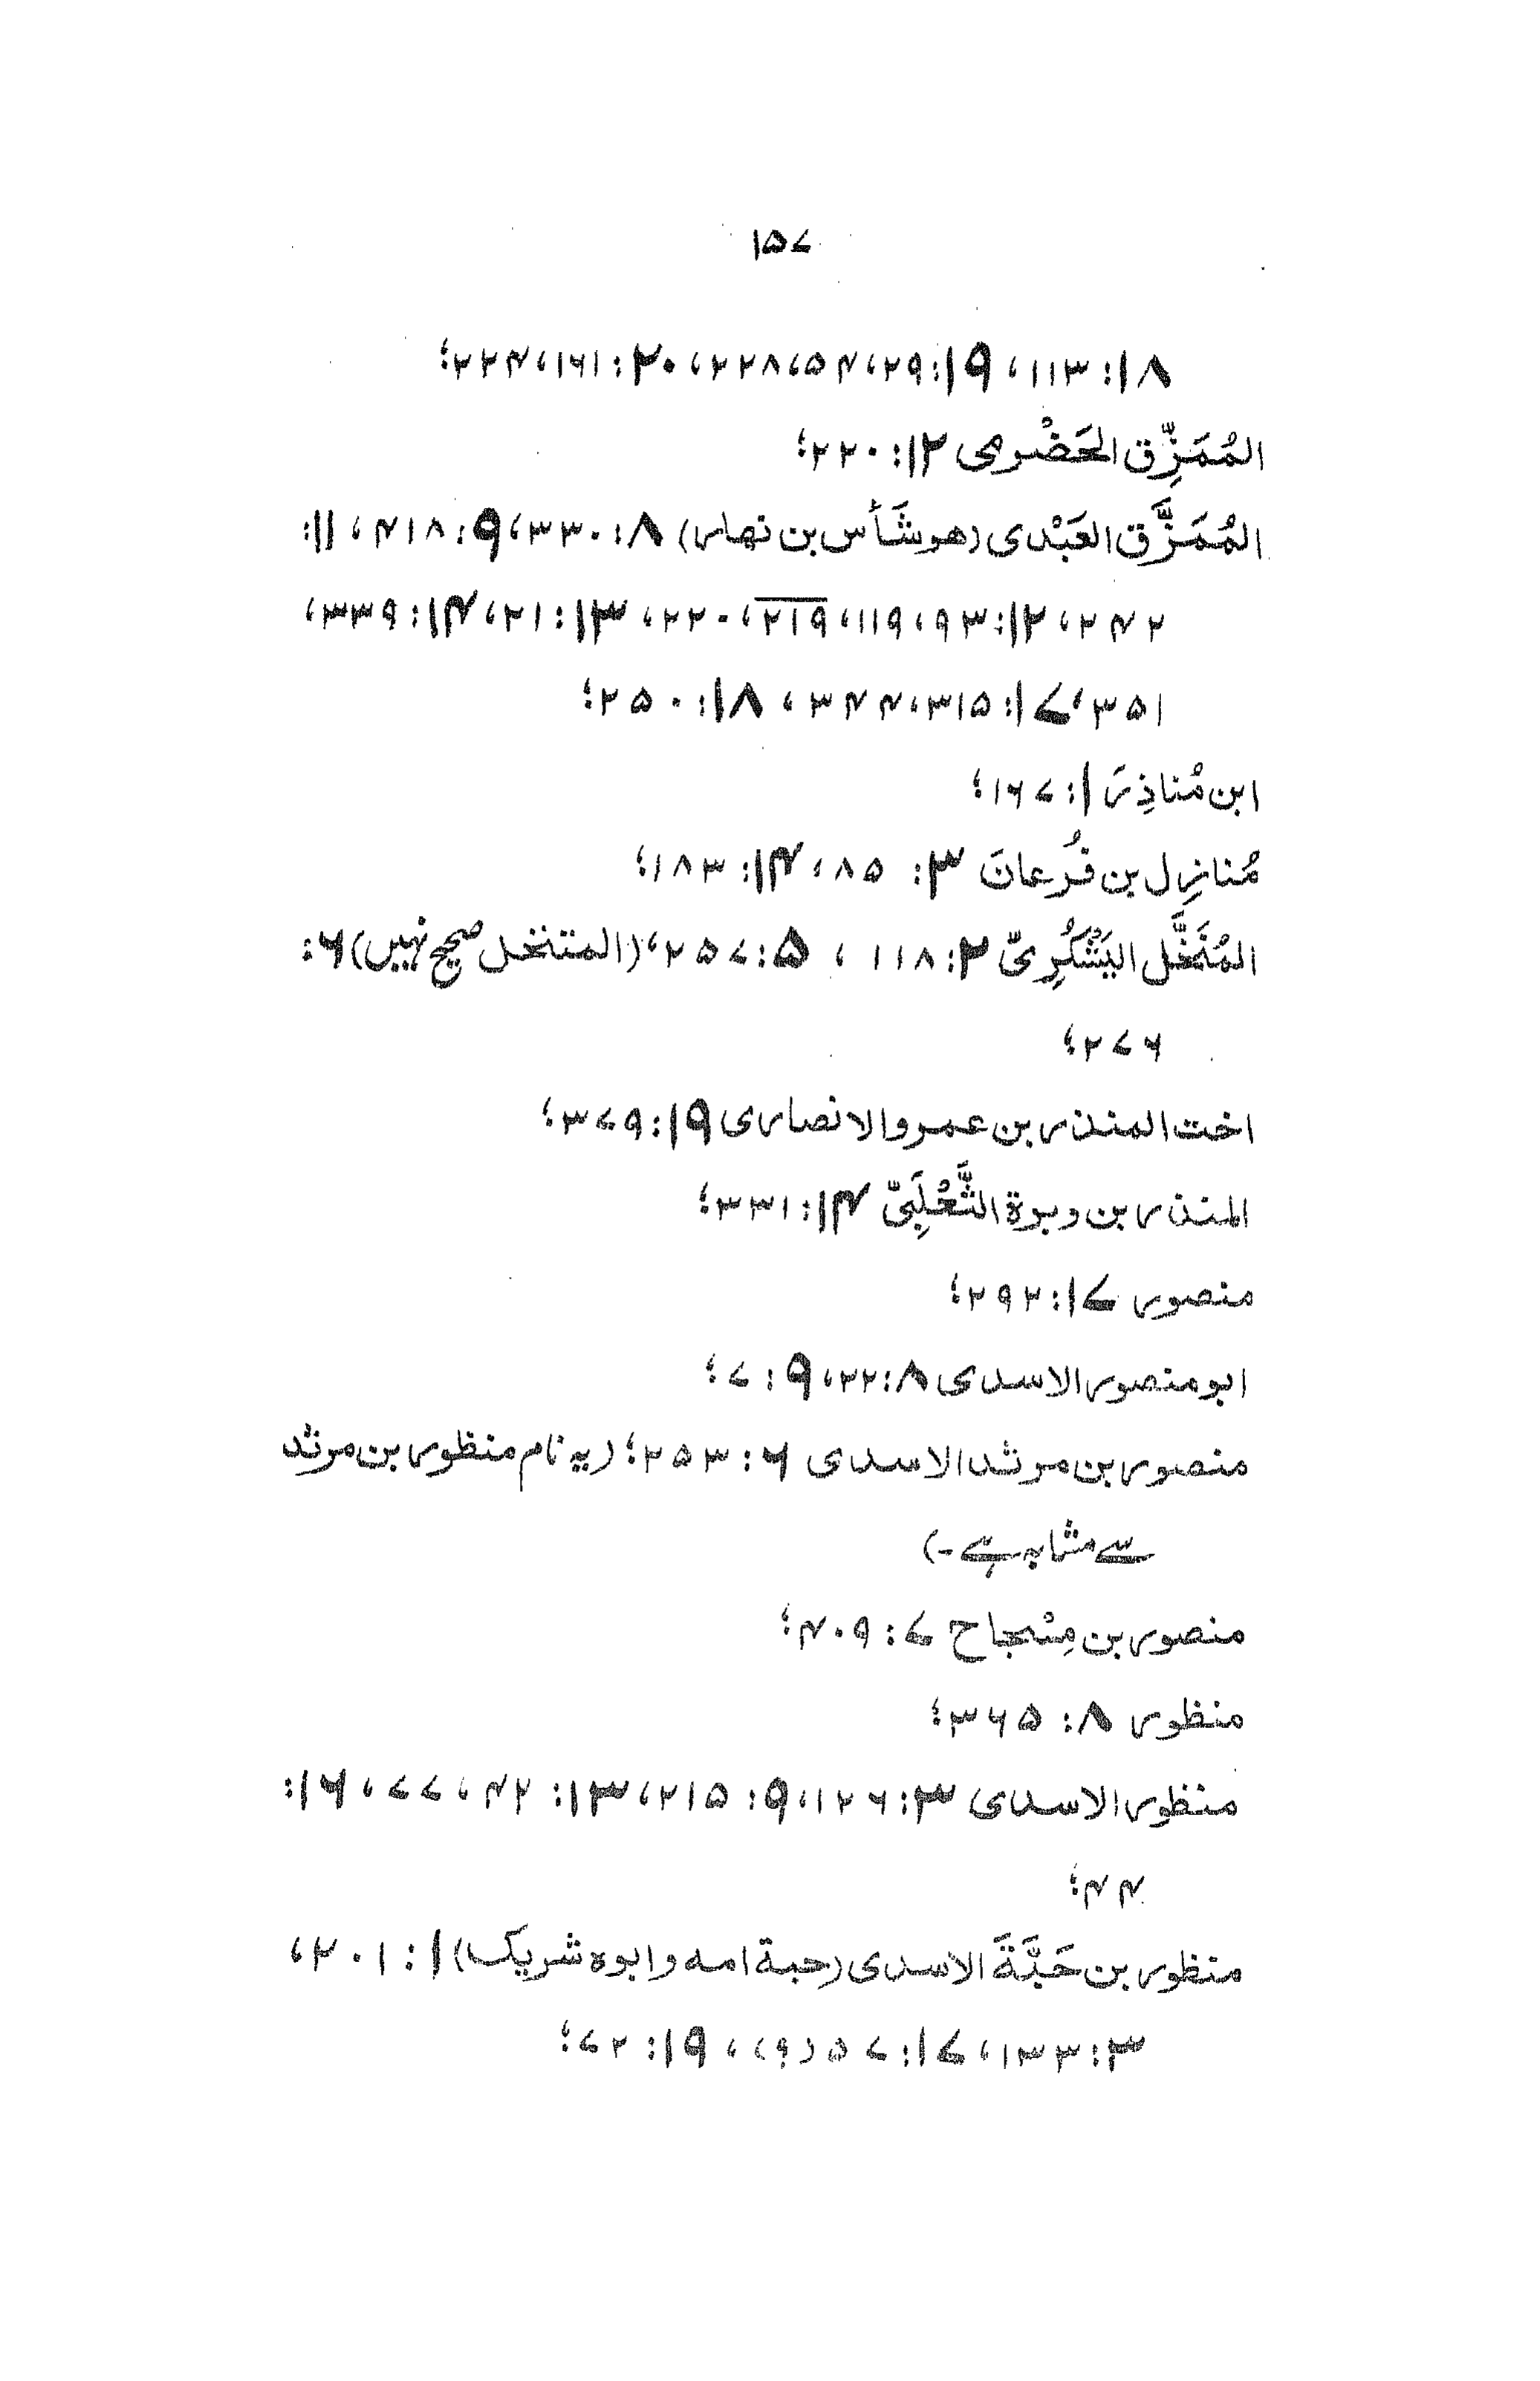 ۱۵۷
۱۸: ۱۱۳، ۱۹: ۲۹، ۵۴، ۲۲۸، ۲۰: ۱۶۱، ۲۲۴؛
المُمَزِّق الحَضْرمی ۱۲: ۲۲۰؛
المُمَزَّق العَبْدی (هو شَأس بن نهار) ۸: ۳۳۰، ۹: ۴۱۸، ۱۱:
۲۴۲، ۱۲: ۹۳، ۱۱۹، ۲۱۹، ۲۲۰، ۱۳: ۲۱، ۱۴: ۳۳۹،
۳۵۱، ۱۷: ۳۱۵، ۳۴۴، ۱۸: ۲۵۰؛
ابن مُناذِرَ ۱: ۱۶۷؛
مُنازِل بن فُرعانَ ۳: ۸۵، ۱۴: ۱۸۳؛
المُنَخَّل الیَشْکُرِیّ ۲: ۱۱۸، ۵: ۲۵۷، (المتنخل صحیح نہیں) ۶:
۲۷۶؛
اخت المنذر بن عمرو الانصاری ۱۹: ۳۷۹؛
المنذر بن وبرة الثَّعْلَبِیّ ۱۴: ۳۳۱؛
منصور ۱۷: ۲۹۲؛
ابو منصور الاسدی ۸: ۲۲، ۹: ۷؛
منصور بن مرثد الاسدی ۶: ۲۵۳؛ (یہ نام منظور بن مرثد
سے مشابہ ہے۔)
منصور بن مِسْجاح ۷: ۴۰۹؛
منظور ۸: ۳۶۵؛
منظور الاسدی ۳: ۱۲۶، ۹: ۲۱۵، ۱۳: ۴۲، ۷۷، ۱۶:
۴۴؛
منظور بن حَبَّةَ الاسدی (حبة امه و ابوه شریک) ۱: ۲۰۱،
۳: ۱۳۳، ۱۷: ۵۷ (؟)، ۱۹: ۷۲؛